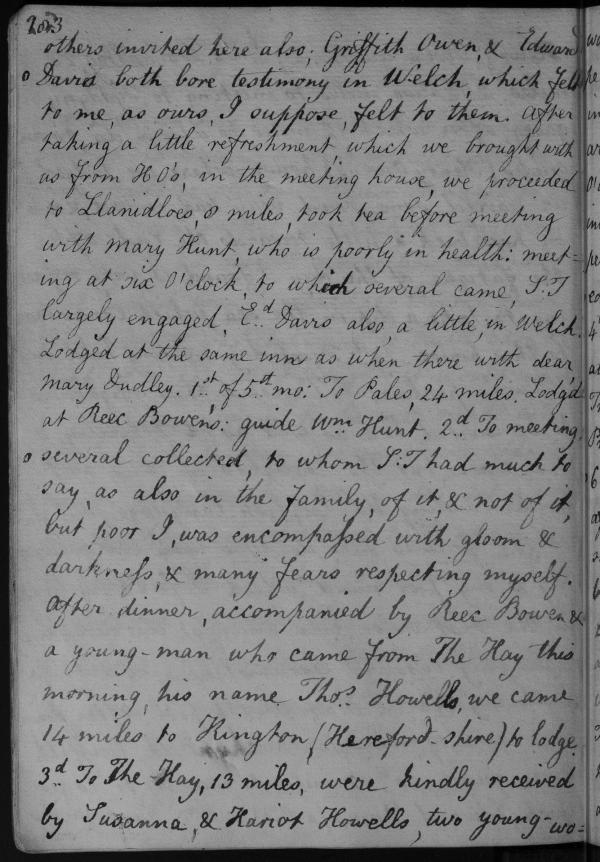 203
others invited here also; Griffith Owen, & Edward
Davis both bore testimony in Welch, which felt
to me, as ours, I suppose, felt to them. after
taking a little refreshment, which we brought with
us from H O's, in the meeting house, we proceeded
to Llanidloes, 8 miles, took tea before meeting
with Mary Hunt, who is poorly in health: meet=
ing at six O'clock, to which several came, S:T
largely engaged, Ed. Davis also, a little, in Welch.
Lodged at the same inn as when there with dear
Mary Dudley. 1st of 5st mo: To Pales, 24 miles. Lodg'd
at Reec Bowen's: guide Wm Hunt. 2d To meeting,
several collected, to whom S:T had much to
say, as also in the family, of it, & not of it,
but poor I, was encompassed with gloom &
darkness, & many fears respecting myself.
After dinner, accompanied by Reec Bowen &
a young-man who came from The Hay this
morning, his name Thos. Howells, we came
14 miles to Kington, (Hereford-shire) to lodge.
3d To The Hay, 13 miles, were kindly received
by Susanna, & Hariot Howells, two young-wo=